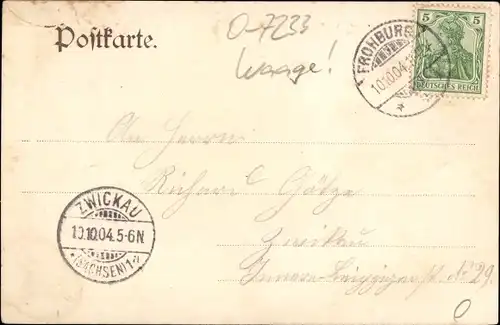 Postkarte.
O-7233
Waage!
FROHBURG
10.10.04.
5 5
DEUTSCHES REICH
An Herrn
Richard Götze
Zwickau
Innere Leipzigerst. No 29.
ZWICKAU
10.10.04.5-6N
*(SACHSEN)1*
0